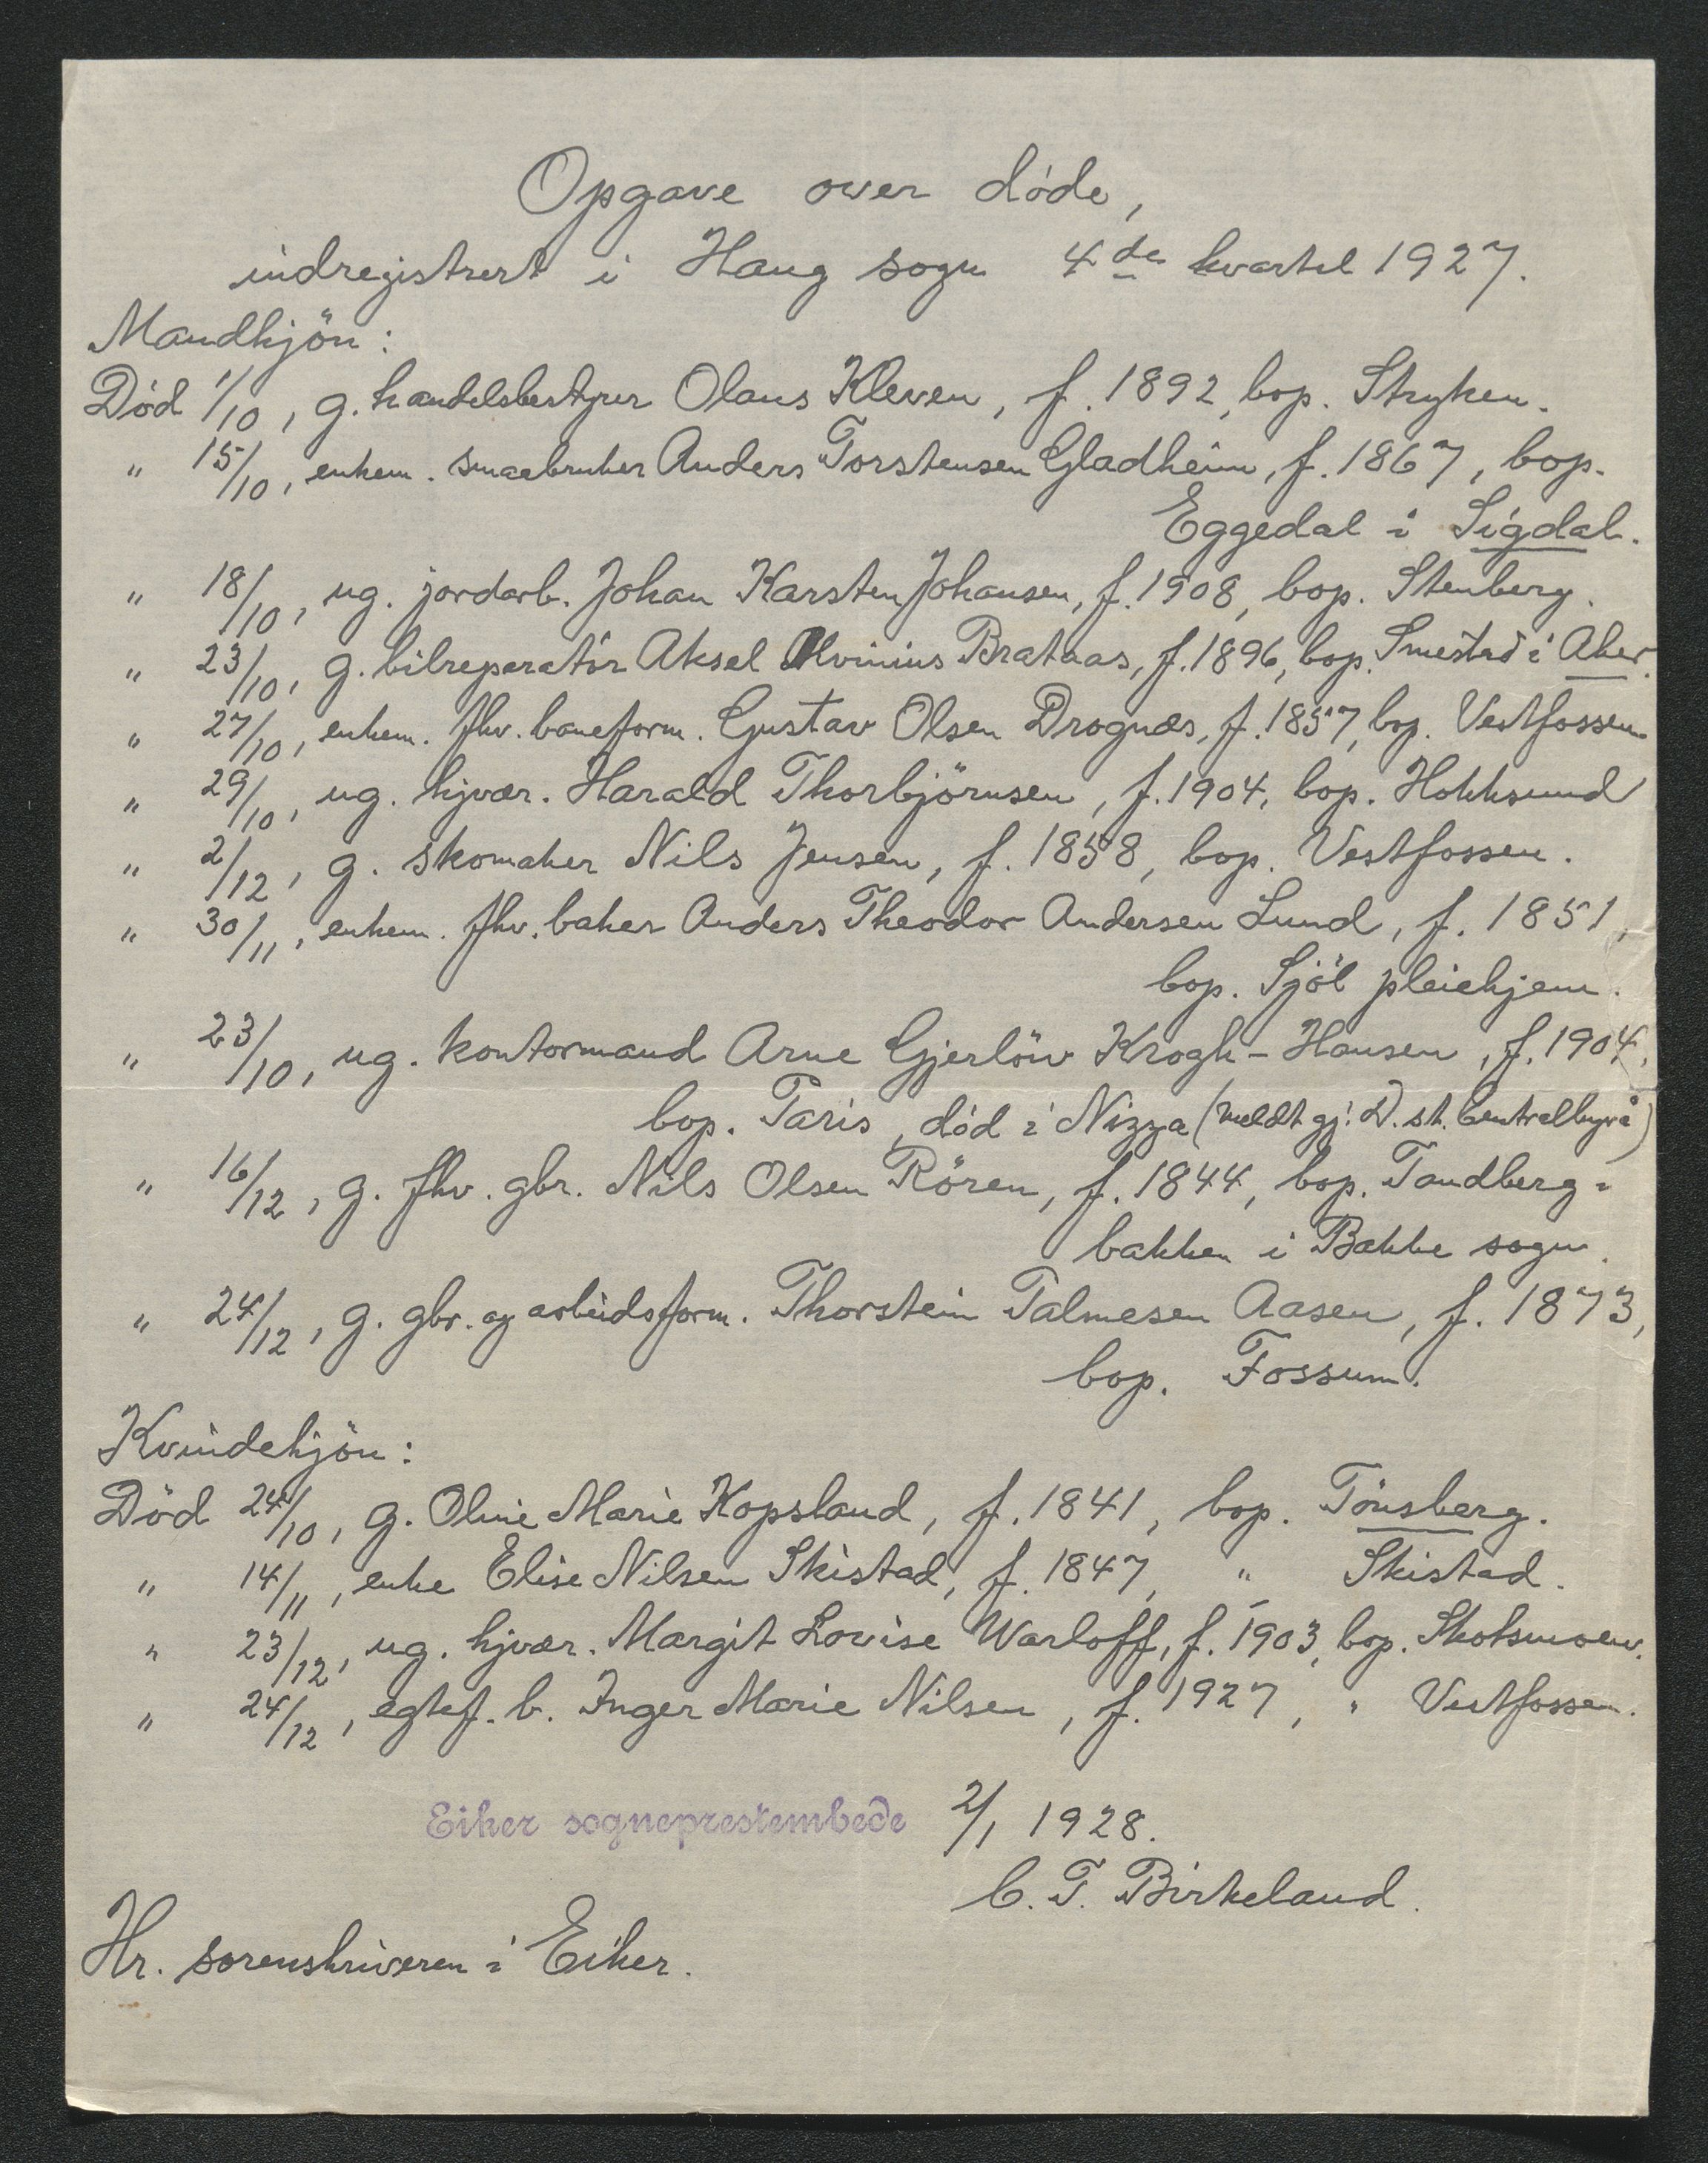 Opgave over døde,
indregistrert i Haug sogn 4de kvartal 1927.
Mandkjön:
Död 1/10, g. handelsbestyrer Olaus Kleven, f. 1892, bop. Stryken.
" 15/10, enkem. smaabruker Anders Torstensen Gladheim, f. 1867, bop.
Eggedal i Sigdal.
" 18/10, ug. jordarb. Johan Karsten Johansen, f. 1908, bop. Stenberg.
" 23/10, g. bilreparatör Aksel Alvinius Brataas, f. 1896, bop. Smestad i Aker.
" 27/10, enkem. fhv. baneform. Gustav Olsen Drognæs, f. 1857, bop. Vestfossen
" 29/10, ug. hjvær. Harald Thorbjörnsen, f. 1904, bop. Hokksund
" 2/12, g. skomaker Nils Jensen, f. 1858, bop. Vestfossen.
" 30/11, enkem. fhv. baker Anders Theodor Andersen Lund, f. 1851,
bop. Sjöl pleiehjem.
" 23/10, ug. kontormand Arne Gjerlöw Krogh-Hansen, f. 1904,
bop. Paris, död i Nizza (meldt gj. D. st. Centralbyrå)
" 16/12, g. fhv. gbr. Nils Olsen Rören, f. 1844, bop. Tandberg-
bakken i Bakke sogn.
" 24/12, g. gbr. og arbeidsform. Thorstein Palmesen Aasen, f. 1873,
bop. Fossum.
Kvindekjön:
Död 24/10, g. Oline Marie Kopsland, f. 1841, bop. Tönsberg.
" 14/11, enke Elise Nilsen Skistad, f. 1847, " Skistad.
" 23/12, ug. hjvær. Margit Lovise Warloff, f. 1903, bop. Skotsmoen.
" 24/12, egtef. b. Inger Marie Nilsen, f. 1927, " Vestfossen.
Eiker sogneprestembede 2/1 1928.
C. T. Birkeland.
Hr. sorenskriveren i Eiker.